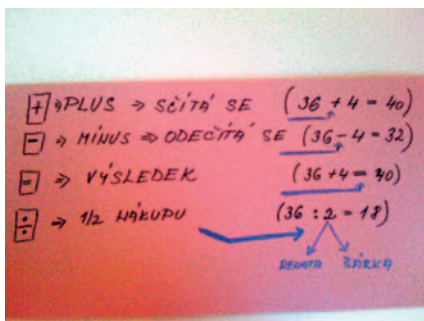 [+] ⇒ PLUS ⇒ SČÍTÁ SE (36 + 4 = 40)
[-] ⇒ MÍNUS ⇒ ODEČÍTÁ SE (36 - 4 = 32)
[=] ⇒ VÝSLEDEK (36 + 4 = 40)
[÷] → 1/2 NÁKUPU (36 : 2 = 18)
RENATA ŠÁRKA